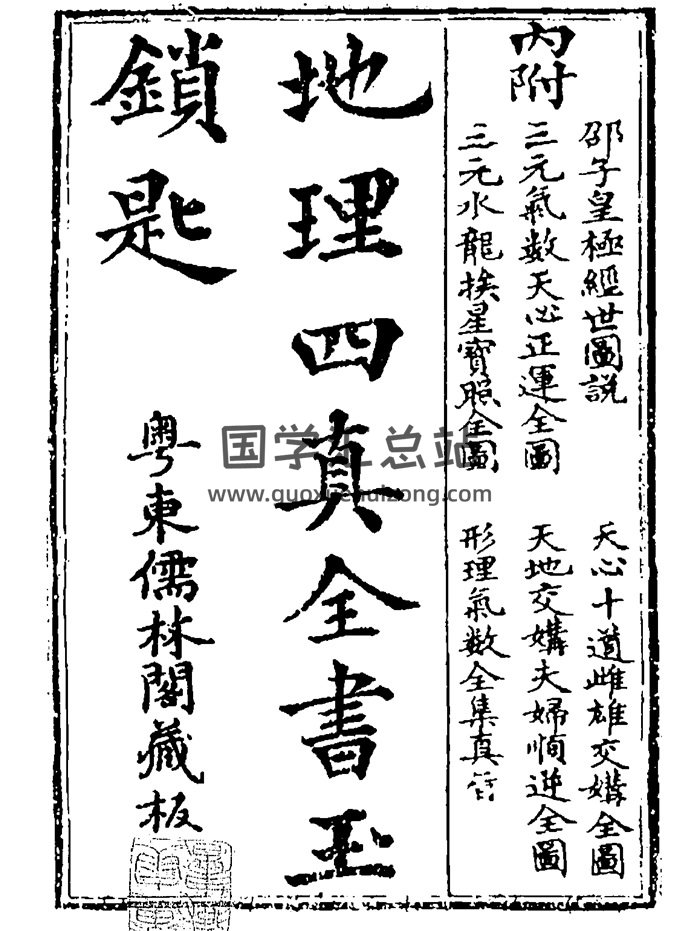 內附
邵子皇極經世圖説
天心十道雌雄交媾全圖
三元氣数天心正運全圖
天地交媾夫婦順逆全圖
三元水龍挨星寶照全圖
形理氣数全集真
地理四真全書玉
鎖匙
粤東儒林閣藏板
国学汇总站
www.guoxuehuizong.com